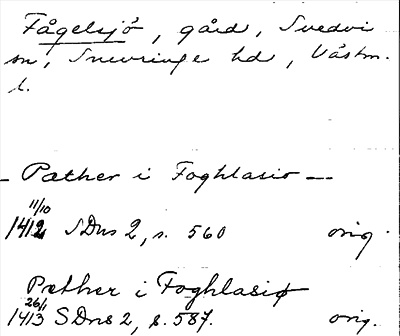 Fågelsjö, gård, Svedvi
sn, Snevringe hd, Västm.
l.
– Pæther i Foghlasio ––
11/10
1412 SDns 2, s. 560 orig.
Pæther i Foghlasiø
26/1
1413 SDns 2, s. 587. orig.